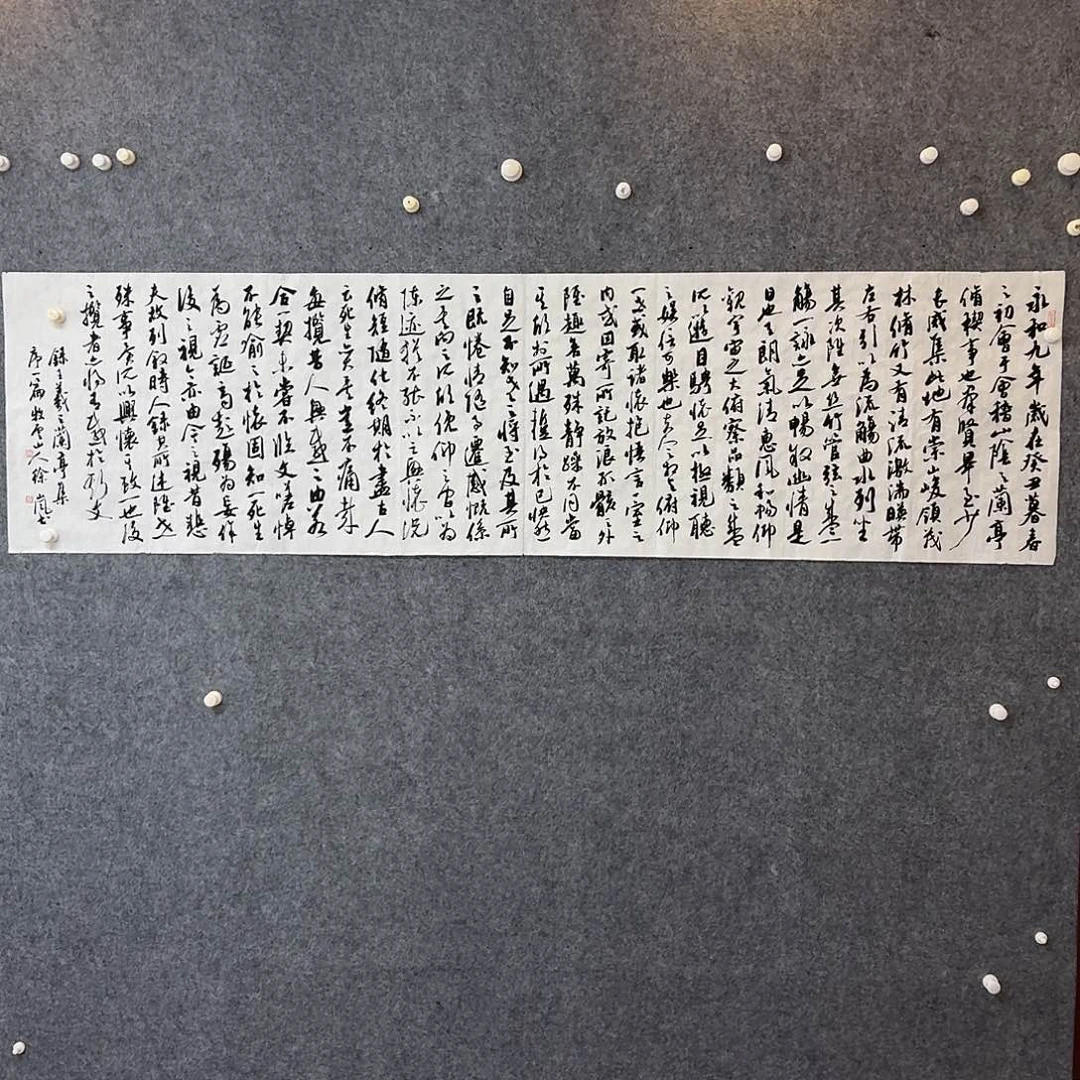 永和九年歲在癸丑暮春
之初會于會稽山陰之蘭亭
脩禊事也羣賢畢至少
長咸集此地有崇山峻領茂
林脩竹又有清流激湍暎帶
左右引以為流觴曲水列坐
其次雖無絲竹管弦之盛一
觴一詠亦足以暢敘幽情是
日也天朗氣清惠風和暢仰
觀宇宙之大俯察品類之盛
所以遊目騁懷足以極視聽
之娛信可樂也夫人之相與俯仰
一世或取諸懷抱悟言一室之
內或因寄所託放浪形骸之外
雖趣舍萬殊靜躁不同當
其欣於所遇蹔得於己怏然
自足不知老之將至及其所
之既惓情隨事遷感慨係
之矣向之所欣俛仰之間以為
陳迹猶不能不以之興懷況
脩短隨化終期於盡古人
云死生亦大矣豈不痛哉
每攬昔人興感之由若
合一契未嘗不臨文嗟悼
不能喻之於懷固知一死生
為虛誕齊彭殤為妄作
後之視今亦由今之視昔悲
夫故列敘時人錄其所述雖世
殊事異所以興懷其致一也後
之攬者亦將有感於斯文
錄王羲之蘭亭集
序一篇 山人徐